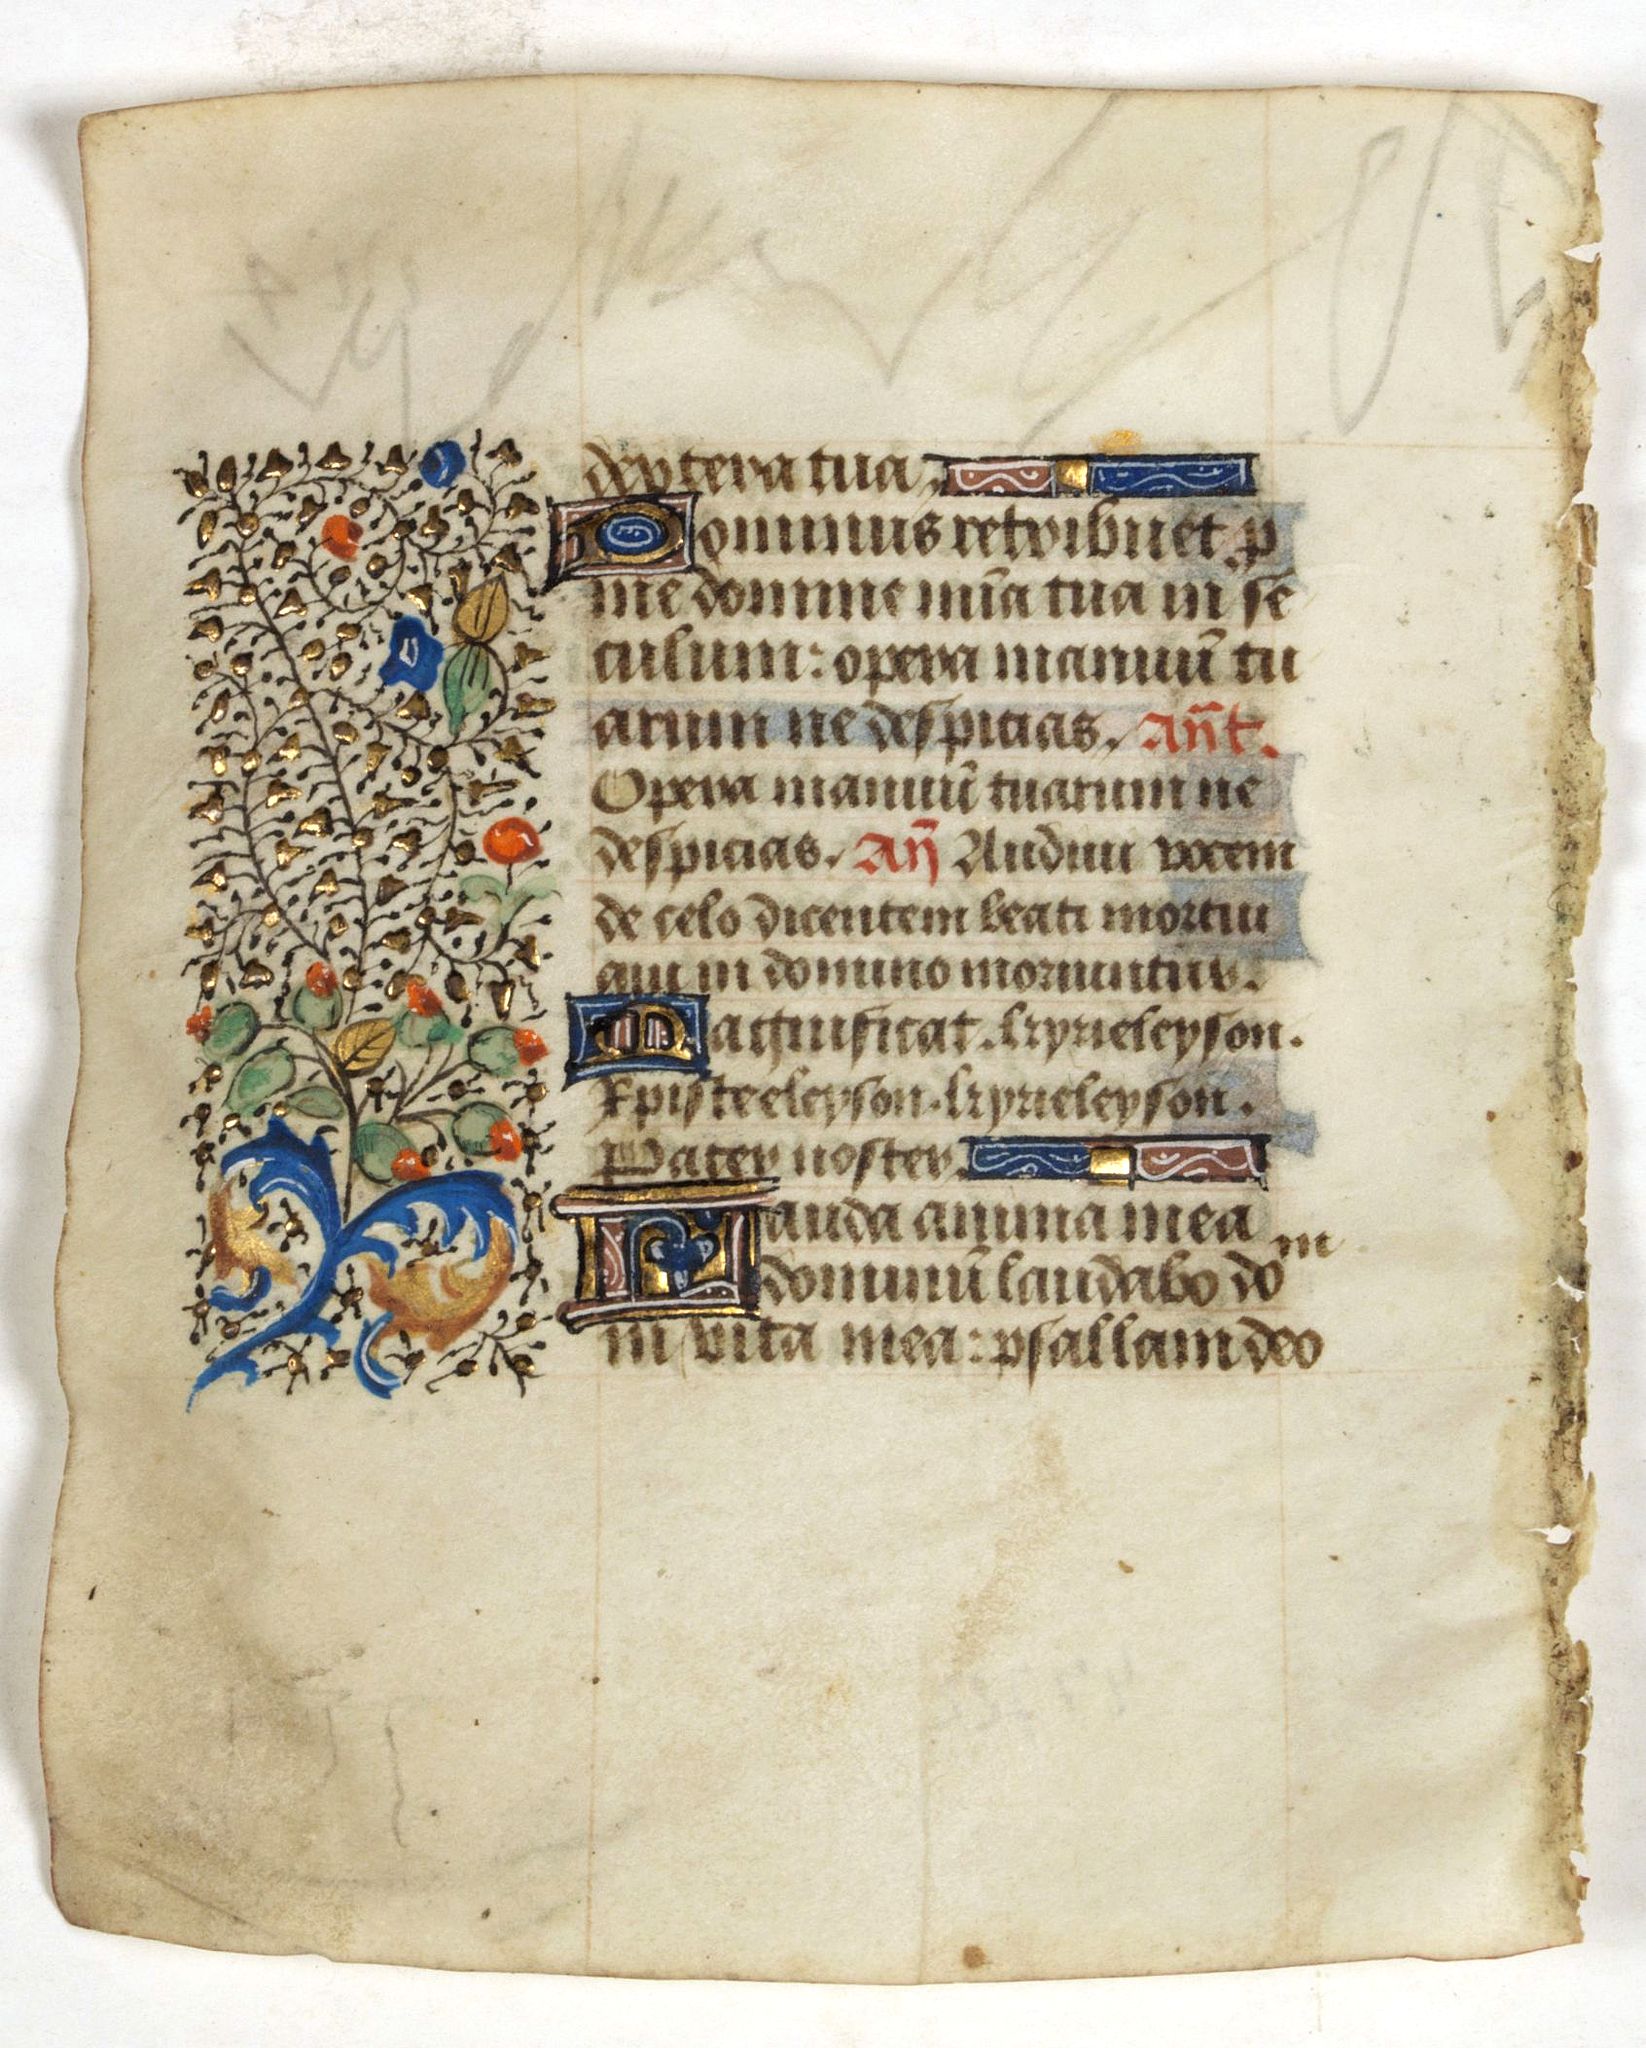 dextera tua.
Dominus retribuet p
me domine mĩa tua in se
culum: opera manuũ tu
arum ne despicias. Añt.
Opera manuũ tuarum ne
despicias. Añ Audiui vocem
de celo dicentem beati mortui
qui in domino moriuntur.
Magnificat. kyrieleyson.
Xpisteeleyson. kyrieleyson.
Pater noster.
Lauda anima mea
dominũ laudabo do m
in vita mea: psallam deo